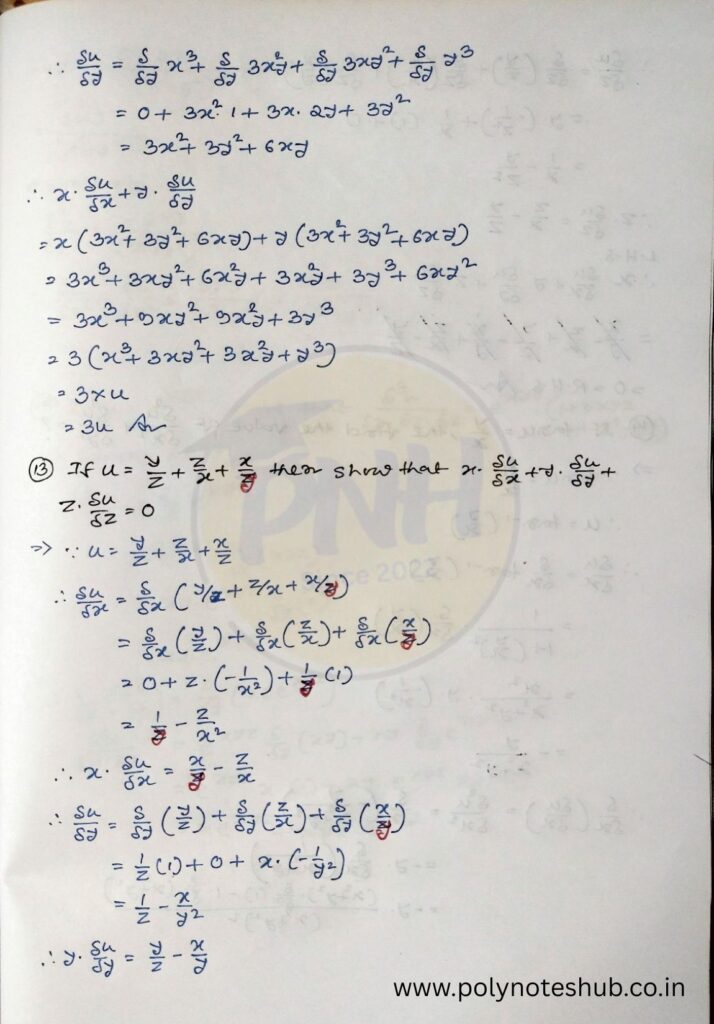 ∴ δu/δy = δ/δy x³ + δ/δy 3x²y + δ/δy 3xy² + δ/δy y³
= 0 + 3x²·1 + 3x·2y + 3y²
= 3x² + 3y² + 6xy
∴ x·δu/δx + y·δu/δy
= x(3x² + 3y² + 6xy) + y(3x² + 3y² + 6xy)
= 3x³ + 3xy² + 6x²y + 3x²y + 3y³ + 6xy²
= 3x³ + 9xy² + 9x²y + 3y³
= 3(x³ + 3xy² + 3x²y + y³)
= 3×u
= 3u Ans
⑬ If u = y/z + z/x + x/y then show that x·δu/δx + y·δu/δy +
z·δu/δz = 0
=> ∵ u = y/z + z/x + x/z
∴ δu/δx = δ/δx (y/z + z/x + x/y)
= δ/δx (y/z) + δ/δx (z/x) + δ/δx (x/y)
= 0 + z·(-1/x²) + 1/y (1)
= 1/y - z/x²
∴ x·δu/δx = x/y - z/x
∴ δu/δy = δ/δy (y/z) + δ/δy (z/x) + δ/δy (x/y)
= 1/z (1) + 0 + x·(-1/y²)
= 1/z - x/y²
∴ y·δu/δy = y/z - x/y
PNH
Since 2022
www.polynoteshub.co.in